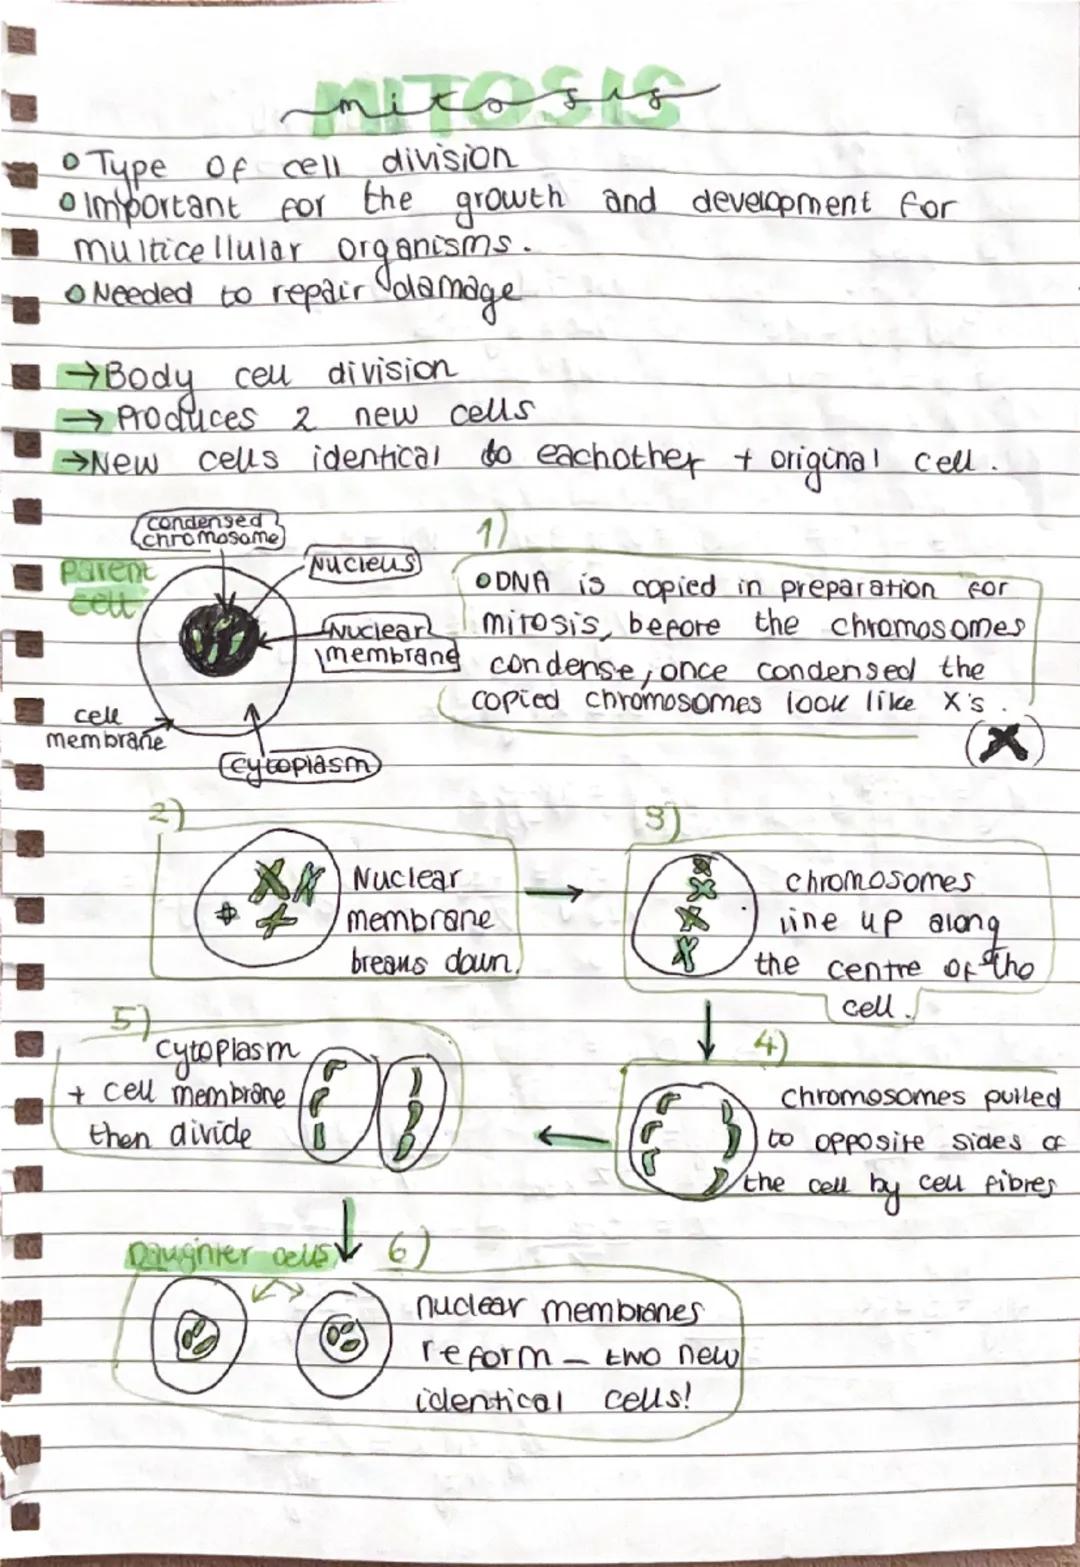 MITOSIS
mitosis
Type of cell division
Important for the growth and development for
multicellular organisms.
Needed to repair damage
→Body cell division
→Produces 2 new cells
→New cells identical to eachother + original cell.
condensed
chromosome
Parent
cell
Nucleus
Nuclear
membrane
cell
membrane
cytoplasm
1)
DNA is copied in preparation for
mitosis, before the chromosomes
condense, once condensed the
copied chromosomes look like X's.
(X)
2)
Nuclear
membrane
breaks down.
3)
chromosomes
line up along
the centre of the
cell.
4)
chromosomes pulled
to opposite sides of
the cell by cell fibres
5)
cytoplasm
+ cell membrane
then divide
Daughter cells
6)
nuclear membranes
reform – two new
identical cells!